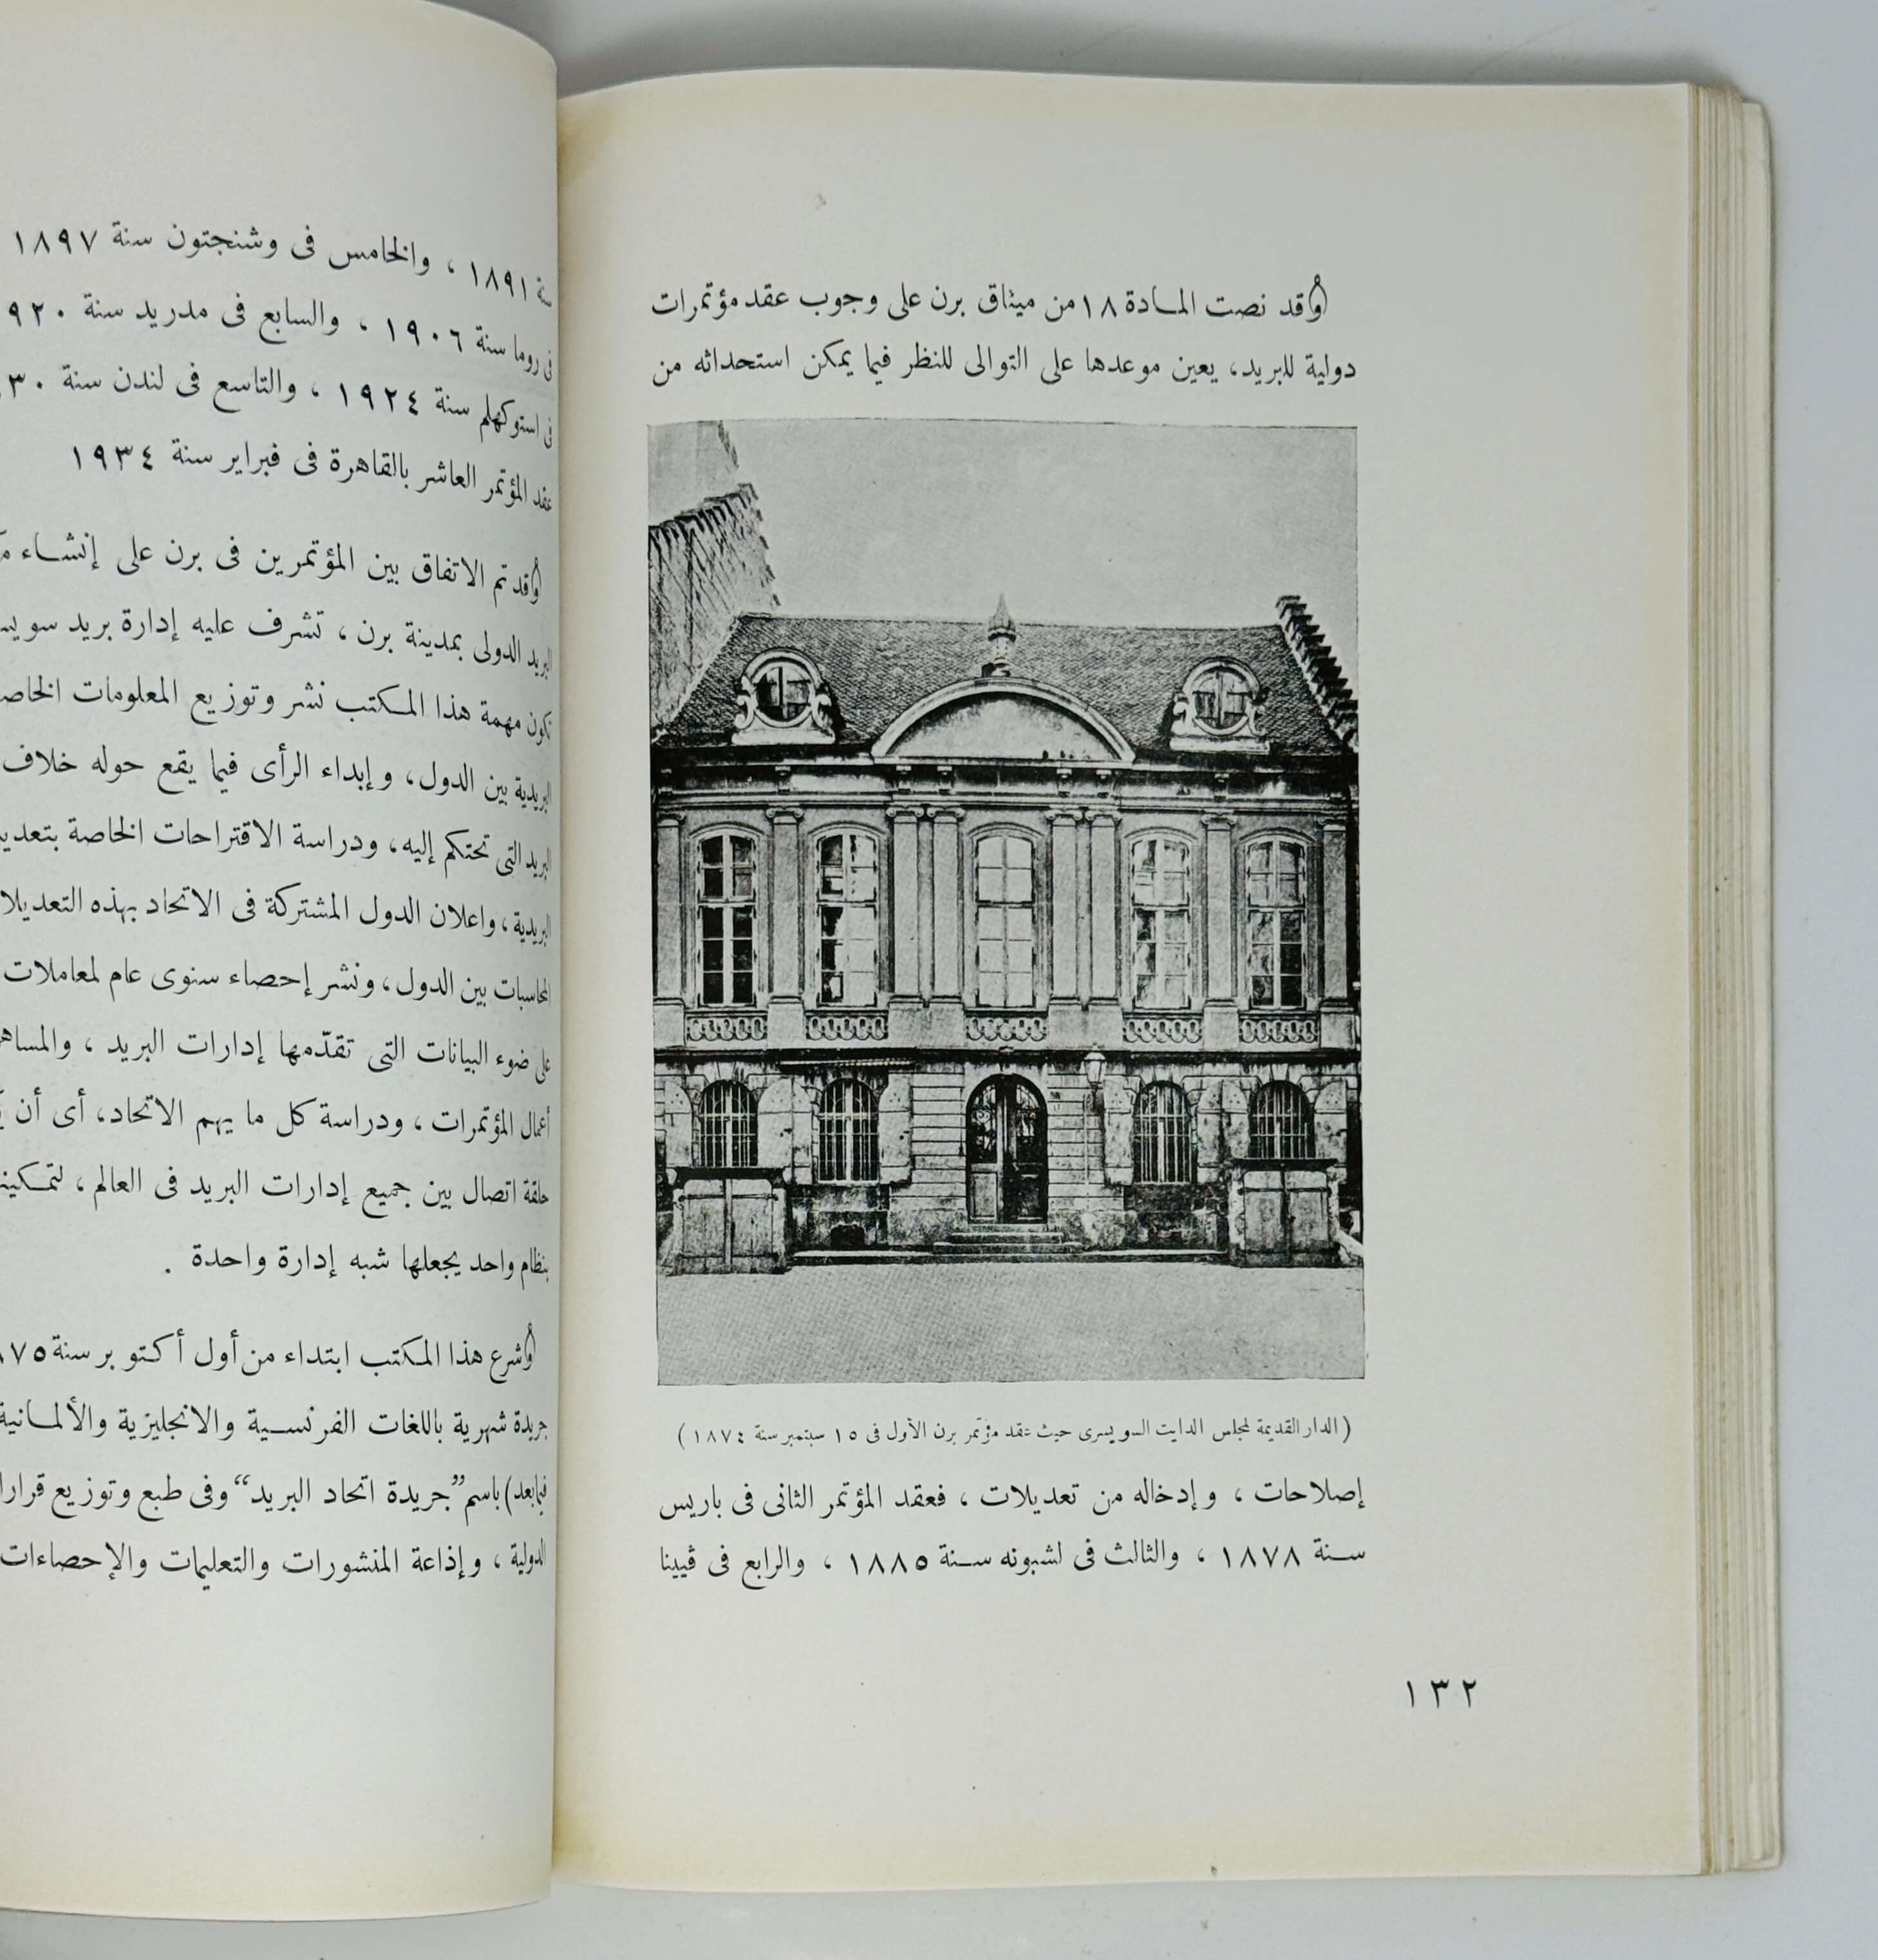 وقد نصت المادة ١٨ من ميثاق برن على وجوب عقد مؤتمرات
دولية للبريد، يعين موعدها على التوالى للنظر فيما يمكن استحداثه من
(الدار القديمة لمجلس الدايت السويسرى حيث عقد مؤتمر برن الأول فى ١٥ سبتمبر سنة ١٨٧٤)
إصلاحات ، وإدخاله من تعديلات ، فعقد المؤتمر الثانى فى باريس
سنة ١٨٧٨ ، والثالث فى لشبونه سنة ١٨٨٥ ، والرابع فى ڤيينا
١٣٢
سنة ١٨٩١ ، والخامس فى وشنجتون سنة ١٨٩٧
فى روما سنة ١٩٠٦ ، والسابع فى مدريد سنة
فى استوكهلم سنة ١٩٢٤ ، والتاسع فى لندن سنة
عقد المؤتمر العاشر بالقاهرة فى فبراير سنة ١٩٣٤
وقد تم الاتفاق بين المؤتمرين فى برن على إنشاء
البريد الدولى بمدينة برن ، تشرف عليه إدارة بريد
تكون مهمة هذا المكتب نشر وتوزيع المعلومات
البريدية بين الدول، وإبداء الرأى فيما يقع حوله خلاف
البريد التى تحتكم إليه، ودراسة الاقتراحات الخاصة
البريدية، واعلان الدول المشتركة فى الاتحاد بهذه
المحاسبات بين الدول، ونشر إحصاء سنوى عام لمعاملات
على ضوء البيانات التى تقدّمها إدارات البريد ،
أعمال المؤتمرات ، ودراسة كل ما يهم الاتحاد، أى أن
حلقة اتصال بين جميع إدارات البريد فى العالم ،
بنظام واحد يجعلها شبه إدارة واحدة .
وشرع هذا المكتب ابتداء من أول أكتوبر سنة
جريدة شهرية باللغات الفرنسية والانجليزية والألمانية
فيما بعد) باسم "جريدة اتحاد البريد" وفى طبع وتوزيع
الدولية ، وإذاعة المنشورات والتعليمات والإحصاءات